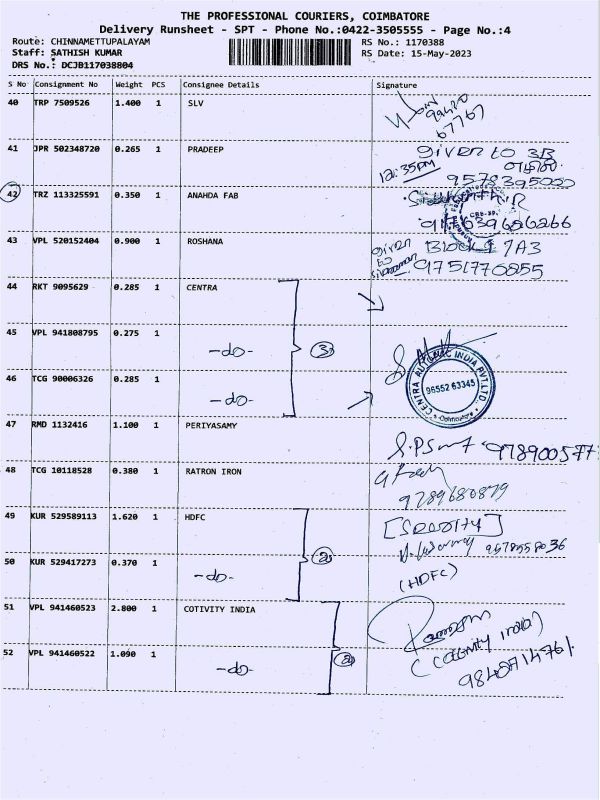 THE PROFESSIONAL COURIERS, COIMBATORE
Delivery Runsheet - SPT - Phone No.:0422-3505555 - Page No.:4
Route: CHINNAMETTUPALAYAM RS No.: 1170388
Staff: SATHISH KUMAR RS Date: 15-May-2023
DRS No.: DCJB117038804
S No Consignment No Weight PCS Consignee Details Signature
40 TRP 7509526 1.400 1 SLV
67767
41 JPR 502348720 0.265 1 PRADEEP Given to 3B
12:35PM
9578395000
42 TRZ 113325591 0.350 1 ANAHDA FAB
43 VPL 520152404 0.900 1 ROSHANA given to Block 1 7A3
9751770855
44 RKT 9095629 0.285 1 CENTRA
45 VPL 941808795 0.275 1
-do- 3
46 TCG 90006326 0.285 1
-do-
CENTRA AUTONIC INDIA PVT.LTD. Coimbatore
96552 63345
47 RMD 1132416 1.100 1 PERIYASAMY
978900577
48 TCG 10118528 0.380 1 RATRON IRON
9789680879
49 KUR 529589113 1.620 1 HDFC
50 KUR 529417273 0.370 1
-do- 2
(HDFC)
51 VPL 941460523 2.800 1 COTIVITY INDIA
(Cotivity India)
52 VPL 941460522 1.090 1
-do- 2
9840714761